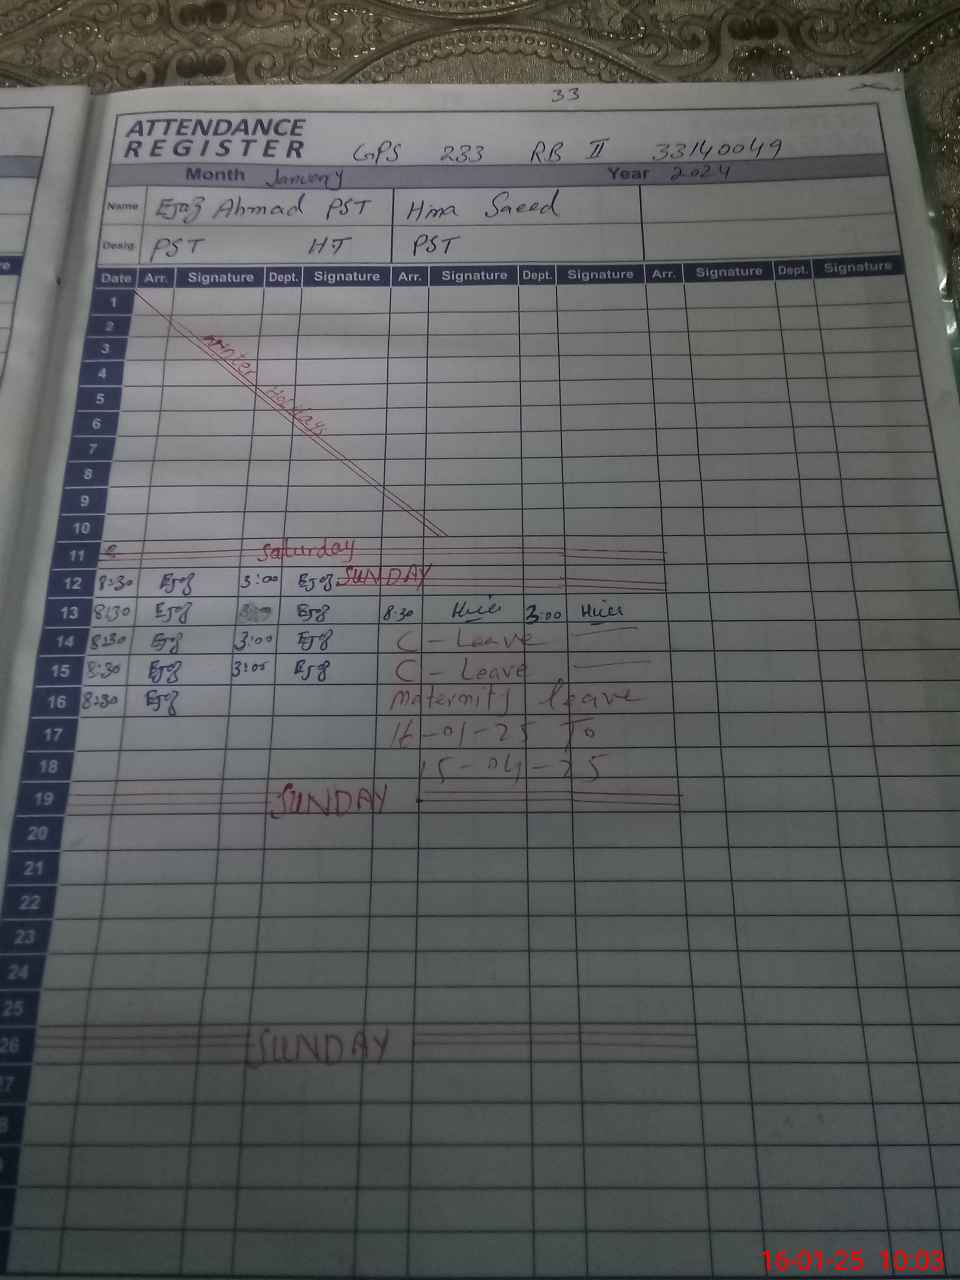 33
ATTENDANCE
REGISTER GPS 233 RB II 33140049
Month January Year 2024
Name Ejaz Ahmad PST Hina Saeed
Desig. PST HT PST
Date Arr. Signature Dept. Signature Arr. Signature Dept. Signature Arr. Signature Dept. Signature
1
2
3 Winter
4
5 Holidays
6
7
8
9
10
11 Saturday
12 8:30 Ejaz 3:00 Ejaz SUNDAY
13 8:30 Ejaz Ejaz 8:30 3:00
14 8:30 Ejaz 3:00 Ejaz C - Leave
15 8:30 Ejaz 3:00 Ejaz C - Leave
16 8:30 Ejaz Maternity leave
17 16-01-25 To
18 15-04-25
19 SUNDAY
20
21
22
23
24
25
26 SUNDAY
16-01-25 10:03